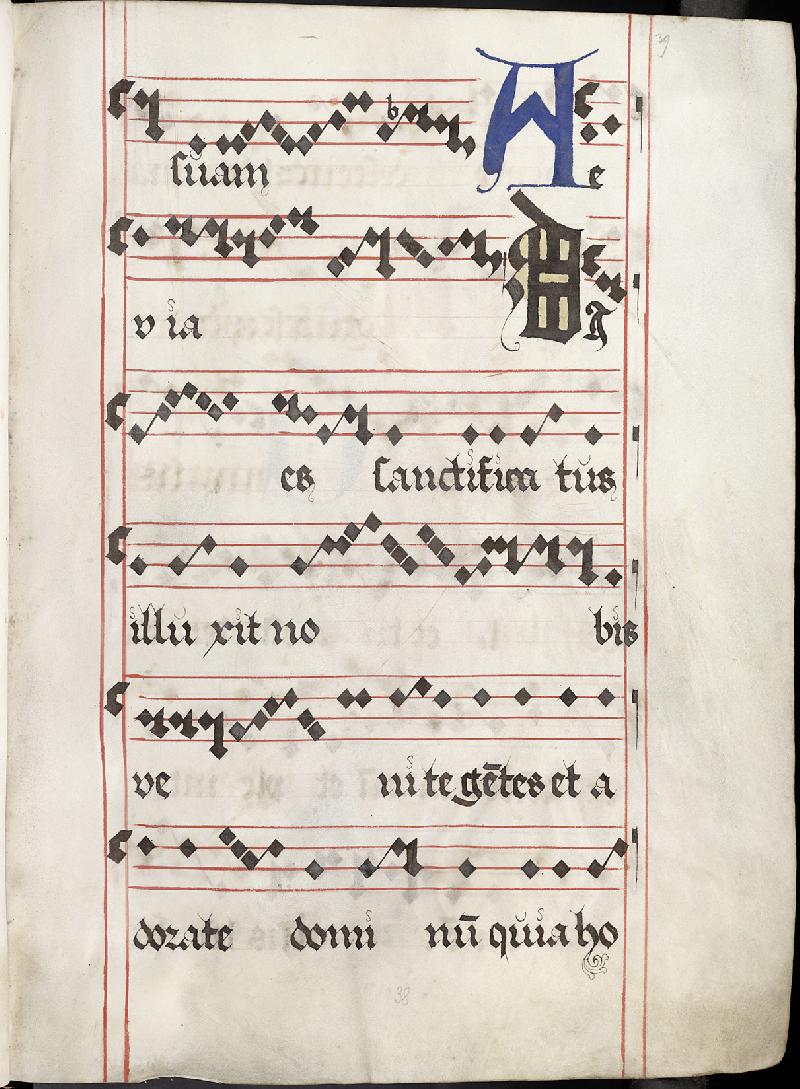 39
b
suam A e
v ia D I
es sanctifica tus
illu xit no bis
ve ni te gētes et a
dorate domi nū quia ho
38